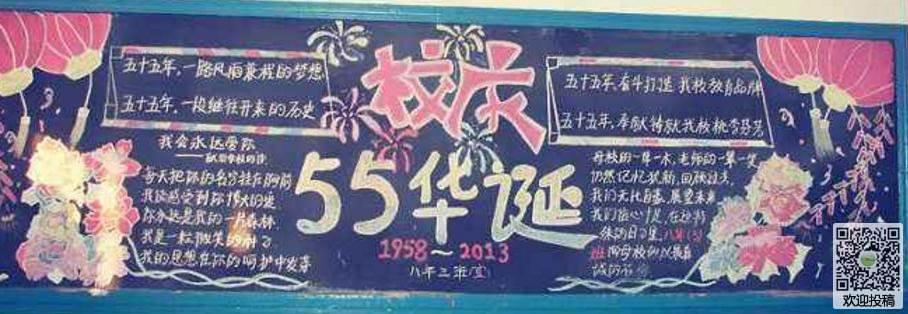 五十五年,一路风雨兼程的梦想
五十五年,一段继往开来的历史
校庆
五十五年,奋斗打造 我校教育品牌
五十五年,奉献铸就我校桃李芬芳
我会永远爱你
每天把你的名字挂在胸前
我能感受到你伟大的
你永远是我的一片森林
我是一粒微笑的
我的思想在你的呵护中发芽
55华诞
1958~2013
八年三班(宣)
母校的一草一木,老师的一颦一笑
仍然记忆犹新,回
我们无比自豪,展望未来
我们信心十足,在这特
殊的日子里,八年(3)
班向母校致以最真
诚的
欢迎投稿